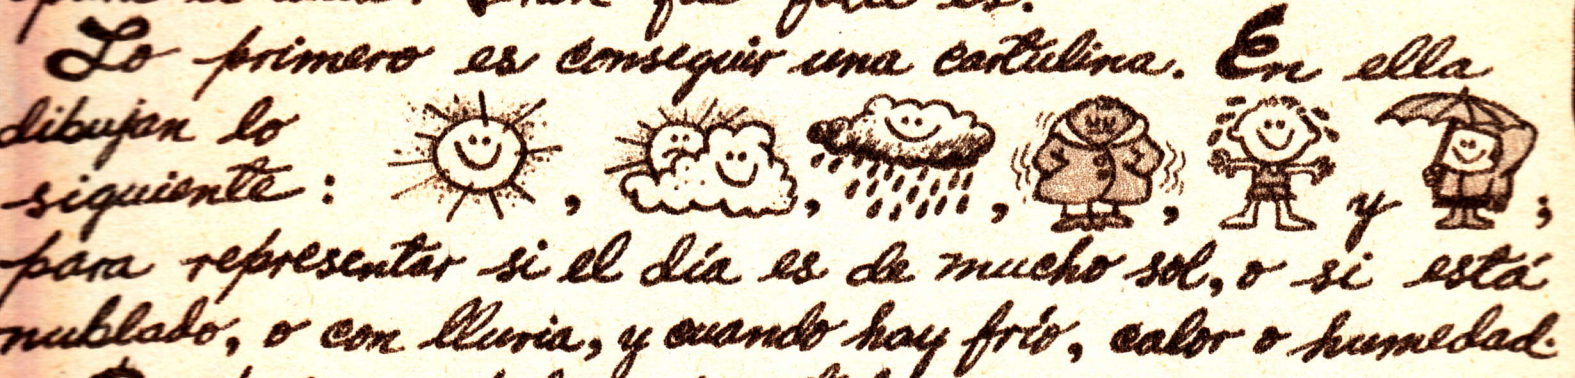 Lo primero es conseguir una cartulina. En ella
dibujan lo
siguiente: , , , , y ;
para representar si el día es de mucho sol, o si está
nublado, o con lluvia, y cuando hay frío, calor o humedad.